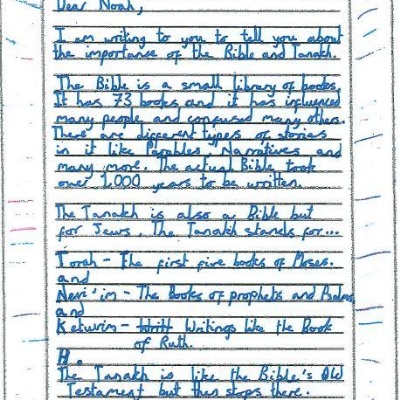 Dear Noah,
I am writing to you to tell you about
the importance of the Bible and Tanakh.
The Bible is a small library of books.
It has 73 books and it has influenced
many people and confused many others.
There are different types of stories
in it like Parables, Narratives and
many more. The actual Bible took
over 1,000 years to be written.
The Tanakh is also a Bible but
for Jews. The Tanakh stands for...
Torah - The first five books of Moses.
and
Nevi'im - The Books of prophets and Psalms
and
Ketuvim - Writings like the Book
of Ruth.
H.
The Tanakh is like the Bible's Old
Testament but then stops there.